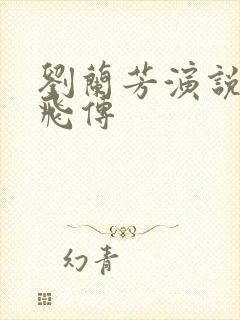 劉蘭芳演說
飛傳
幻青